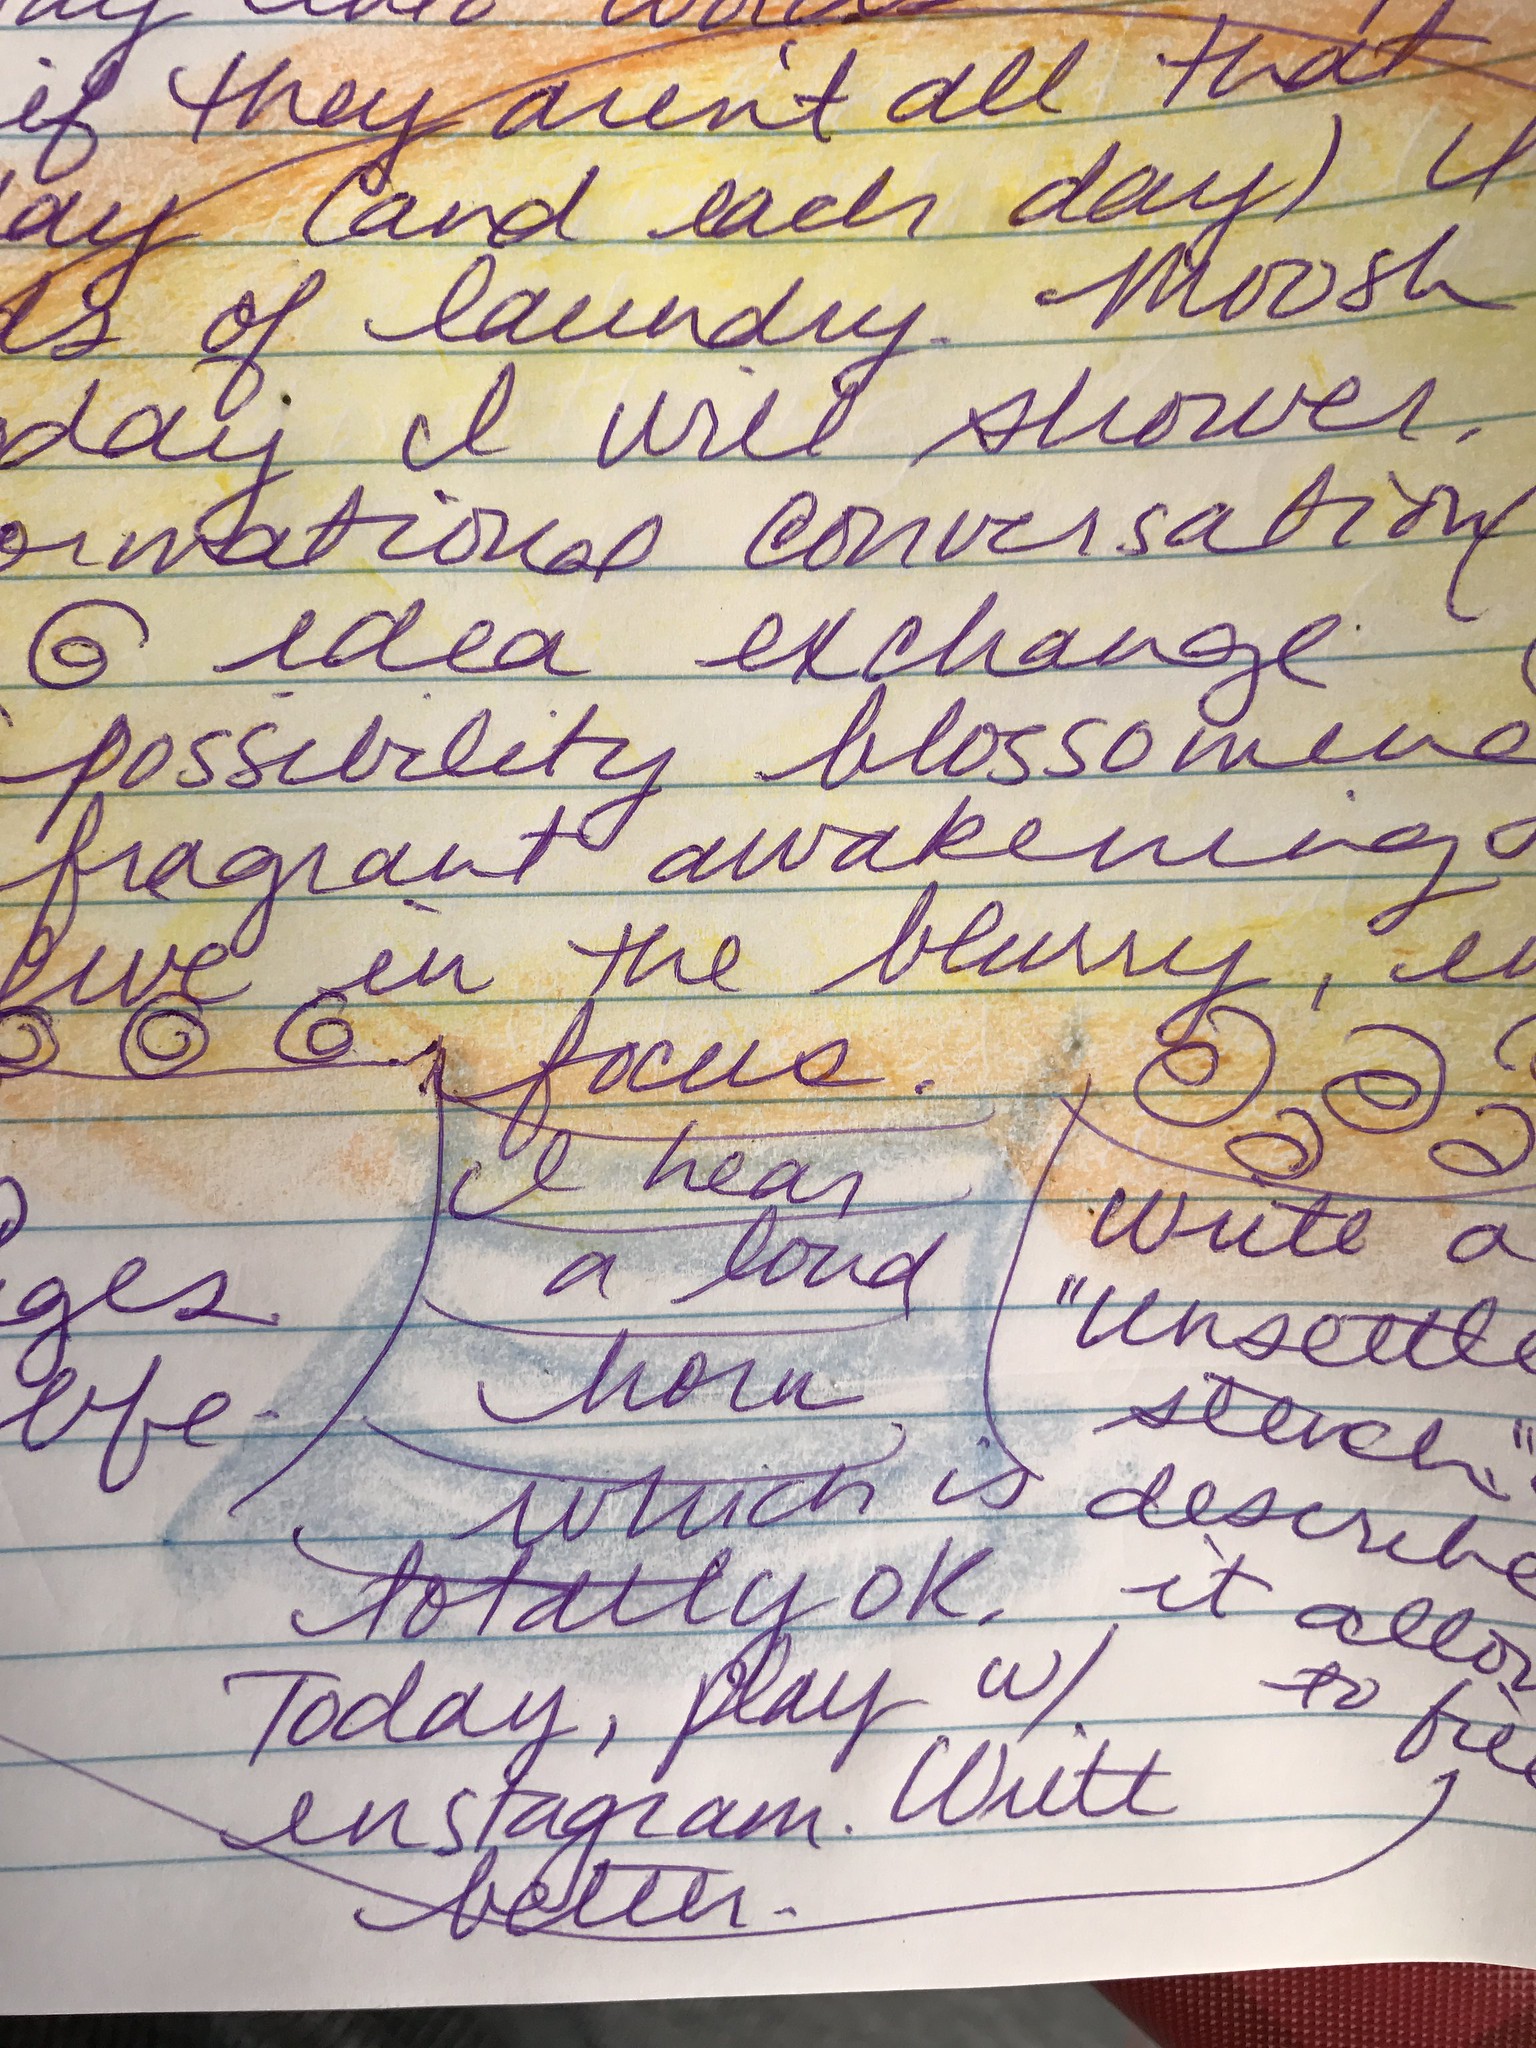 words
if they aren't all that
(and each day) I
of laundry. Moosh
I will shower.
conversation
idea exchange
possibility blossoming
fragrant awakenings
live in the blurry, in
focus.
I hear
a loud
horn
which is
totally OK.
Today, play w/
instagram. Write
better.
ges
life.
Write a
"Unsettle
stench"
describe
it allow
to